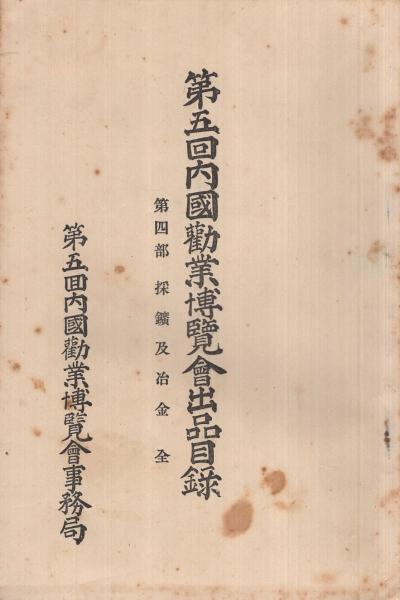 第五回内國勸業博覽會出品目録
第四部採鑛及冶金全
第五回内國勸業博覽會事務局